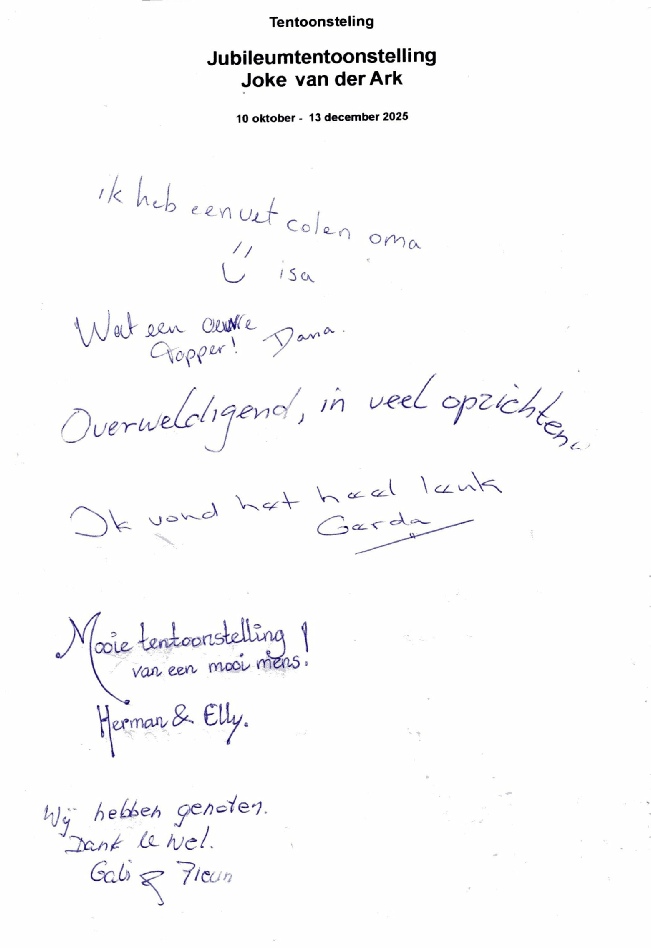 Tentoonsteling
Jubileumtentoonstelling
Joke van der Ark
10 oktober - 13 december 2025
ik heb een vet colen oma
isa
Wat een oeuvre
Topper! Dana.
Overweldigend, in veel opzichten.
Ik vond het heel leuk
Gerda
Mooie tentoonstelling
van een mooi mens!
Herman & Elly.
Wij hebben genoten.
Dank je wel.
Gabi & Fleur